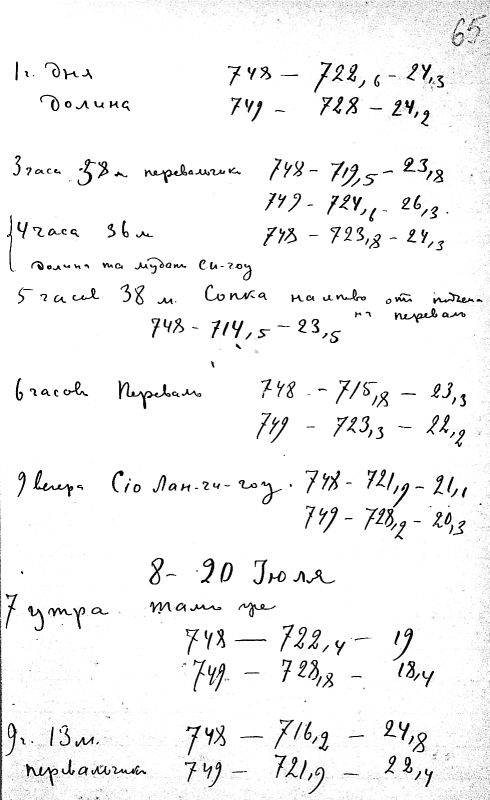 65
1 г. дня 748 — 722,6 - 24,3
Долина 749 - 728 - 24,2
3 часа 58 м перевальчик 748 - 719,5 - 23,8
749 - 724,6 - 26,3.
4 часа 36 м 748 - 723,8 - 24,3
Долина Си-гоу
5 часов 38 м. Сопка налево отъ
на перевалъ
748 - 714,5 - 23,5
6 часовъ Перевалъ 748 - 715,8 - 23,3
749 - 723,3 - 22,2
9 вечера Сіо Лан-чи-гоу. 748 - 721,9 - 21,1
749 - 728,2 - 20,3
8 - 20 Іюля
7 утра тамъ же
748 — 722,4 - 19
749 - 728,8 - 18,4
9 г. 13 м. 748 - 716,2 - 24,8
перевальчика 749 - 721,9 - 22,4